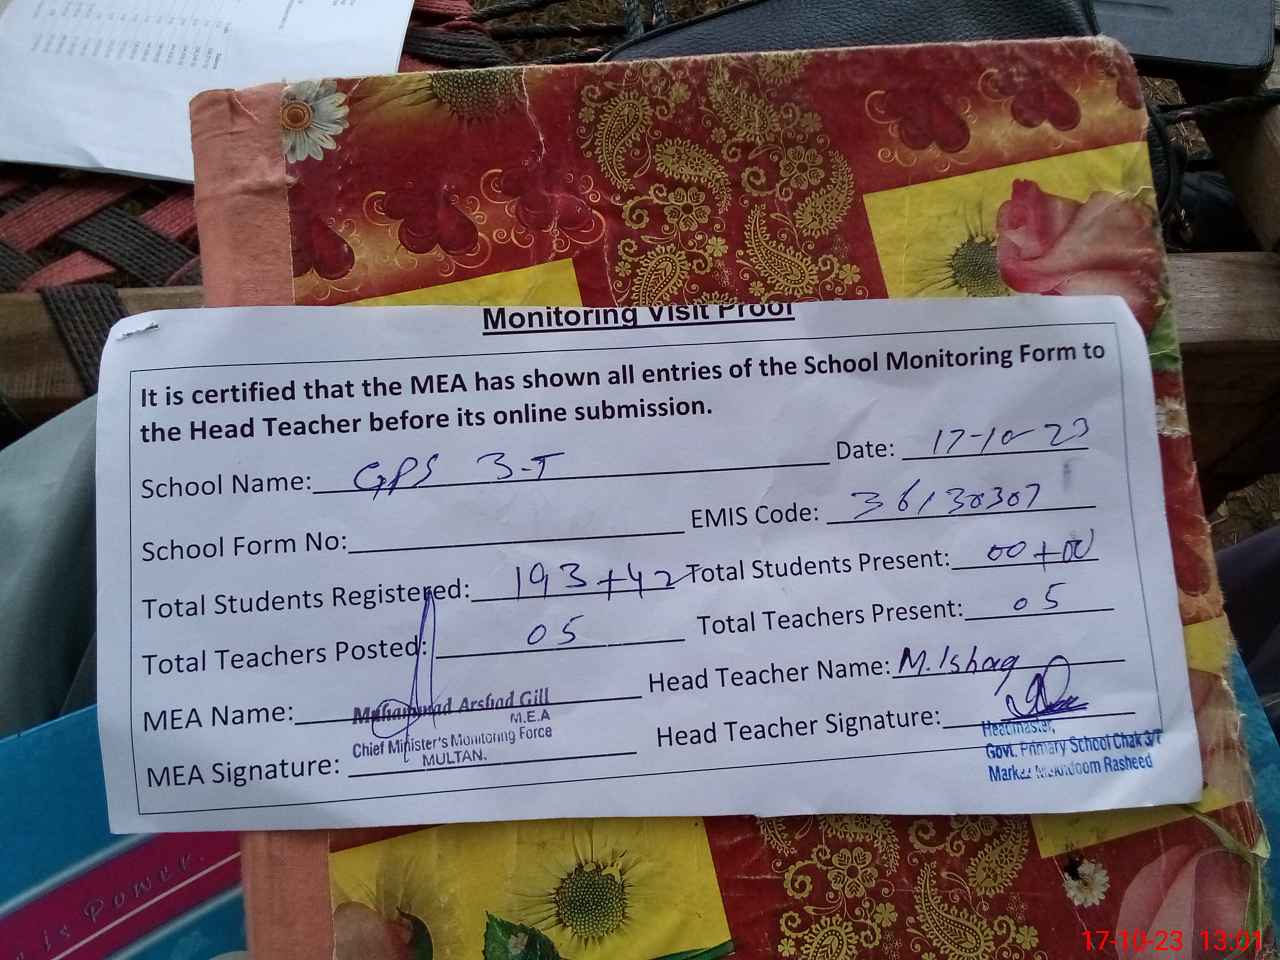 Monitoring Visit Proof
It is certified that the MEA has shown all entries of the School Monitoring Form to
the Head Teacher before its online submission.
School Name: GPS 3-T Date: 17-10-23
School Form No: EMIS Code: 36130307
Total Students Registered: 193+42 Total Students Present: 00+00
Total Teachers Posted: 05 Total Teachers Present: 05
MEA Name: Muhammad Arshad Gill Head Teacher Name: M.Ishaq
M.E.A
Chief Minister's Monitoring Force
MULTAN.
MEA Signature: Head Teacher Signature:
Headmaster,
Govt. Primary School Chak 3/T
Markaz Makhdoom Rasheed
is Power.
17-10-23 13:01